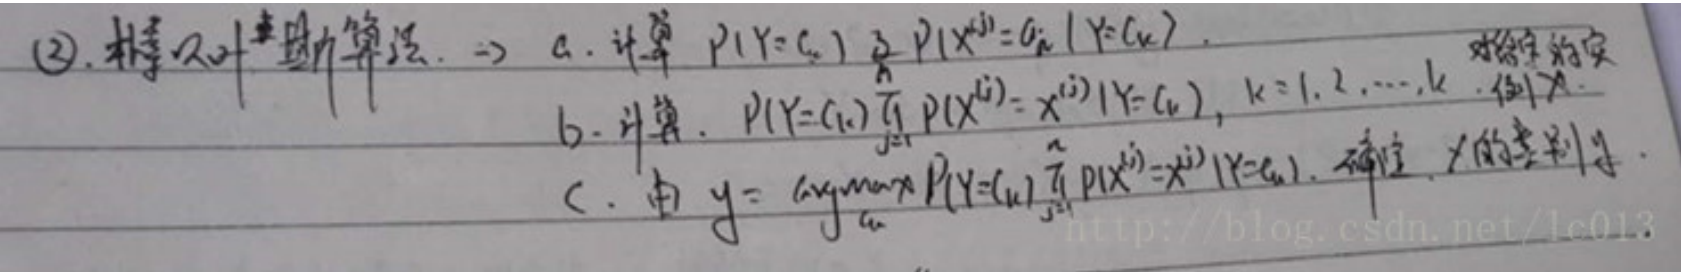 ②. 朴素贝叶斯算法. => a. 计算 P(Y=Ck) 及 P(X^(j)=ajl | Y=Ck).
b. 计算. P(Y=Ck) ∏_{j=1}^{n} P(X^(j)=x^(j) | Y=Ck), k=1,2,…,k. 对给定的实例x.
c. 由 y = argmax_{ck} P(Y=Ck) ∏_{j=1}^{n} P(X^(j)=x^(j) | Y=Ck). 确定. x的类别y.
http://blog.csdn.net/lc013